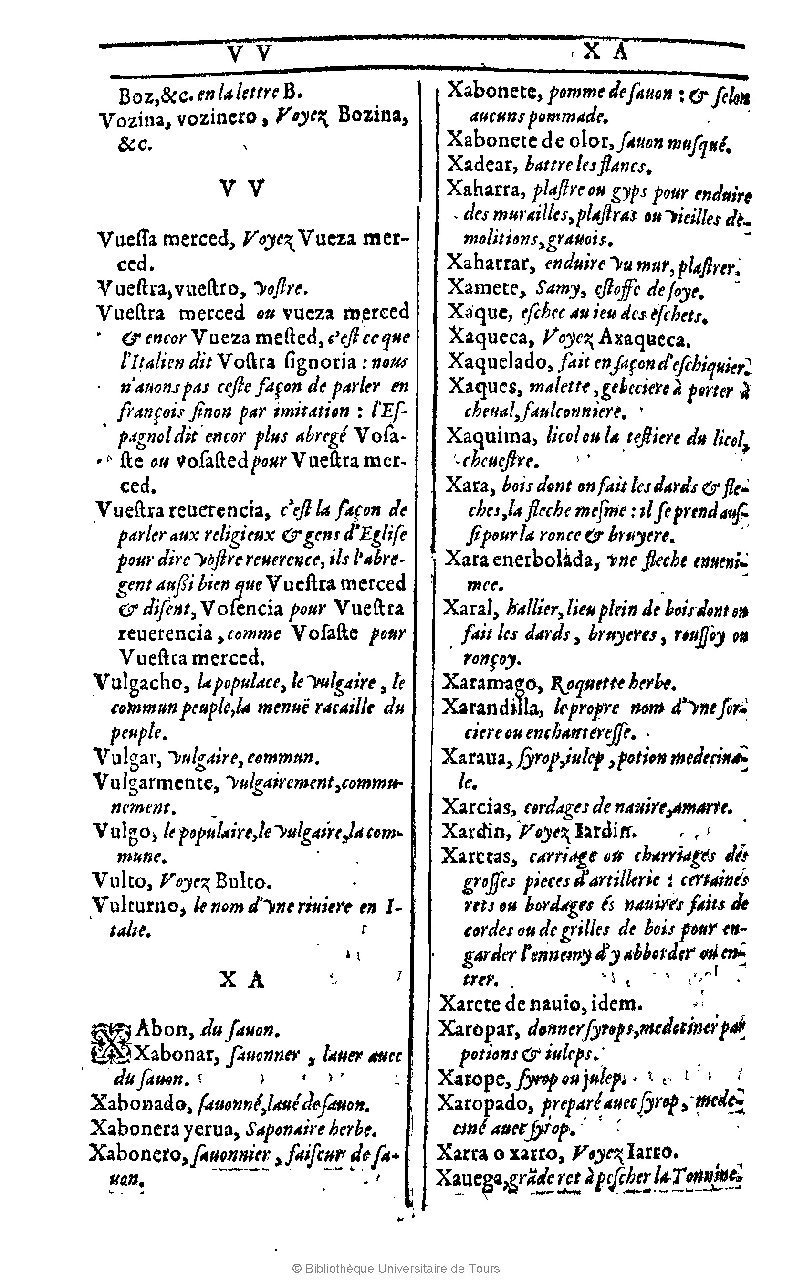 V V
X A
Boz,&c. en la lettre B.
Vozina, vozinero, Voyez Bozina,
&c.
V V
Vueſſa merced, Voyez Vueza mer-
ced.
Vueſtra, vueſtro, voſtre.
Vueſtra merced ou vueza merced
& encor Vueza meſted, c'eſt ce que
l'Italien dit Voſtra ſignoria : nous
n'auons pas ceſte façon de parler en
françois ſinon par imitation : l'Eſ-
pagnol dit encor plus abregé Voſa-
ſte ou voſaſted pour Vueſtra mer-
ced.
Vueſtra reuerencia, c'eſt la façon de
parler aux religieux & gens d'Egliſe
pour dire voſtre reuerence, ils l'abre-
gent auſſi bien que Vueſtra merced
& diſent, Voſencia pour Vueſtra
reuerencia, comme Voſaſte pour
Vueſtra merced.
Vulgacho, la populace, le vulgaire, le
commun peuple, la menuë racaille du
peuple.
Vulgar, vulgaire, commun.
Vulgarmente, vulgairement, commu-
nement.
Vulgo, le populaire, le vulgaire, la com-
mune.
Vulto, Voyez Bulto.
Vulturno, le nom d'vne riuiere en I-
talie.
X A
XAbon, du ſauon.
Xabonar, ſauonner, lauer auec
du ſauon.
Xabonado, ſauonné, laué de ſauon.
Xabonera yerua, Saponaire herbe.
Xabonero, ſauonnier, faiſeur de ſa-
uon.
Xabonete, pomme de ſauon : & ſelon
aucuns pommade.
Xabonete de olor, ſauon muſqué.
Xadear, battre les flancs.
Xaharra, plaſtre ou gyps pour enduire
des murailles, plaſtras ou vieilles de-
molitions, grauois.
Xaharrar, enduire vn mur, plaſtrer.
Xamete, Samy, eſtoffe de ſoye.
Xaque, eſchec au ieu des eſchets.
Xaqueca, Voyez Axaqueca.
Xaquelado, fait en façon d'eſchiquier.
Xaques, malette, gebeciere à porter à
cheual, faulconniere.
Xaquima, licol ou la teſtiere du licol,
cheueſtre.
Xara, bois dont on fait les dards & fle-
ches, la fleche meſme : il ſe prend auſ-
ſi pour la ronce & bruyere.
Xara enerbolada, vne fleche enueni-
mee.
Xaral, hallier, lieu plein de bois dont on
fait les dards, bruyeres, rouſſoy ou
ronçoy.
Xaramago, Roquette herbe.
Xarandilla, le propre nom d'vne ſor-
ciere ou enchantereſſe.
Xaraua, ſyrop, iulep, potion medecina-
le.
Xarcias, cordages de nauire, amarre.
Xardin, Voyez Iardin.
Xaretas, carriage ou charriages des
groſſes pieces d'artillerie : certaines
rets ou bordages és nauires faits de
cordes ou de grilles de bois pour en-
garder l'ennemy d'y abborder ou en-
trer.
Xarete de nauio, idem.
Xaropar, donner ſyrops, medeciner par
potions & iuleps.
Xarope, ſyrop ou julep.
Xaropado, preparé auec ſyrop, mede-
ciné auec ſyrop.
Xarra o xarro, Voyez Iarro.
Xauega, grāde ret à peſcher la Tonnine.
© Bibliothèque Universitaire de Tours